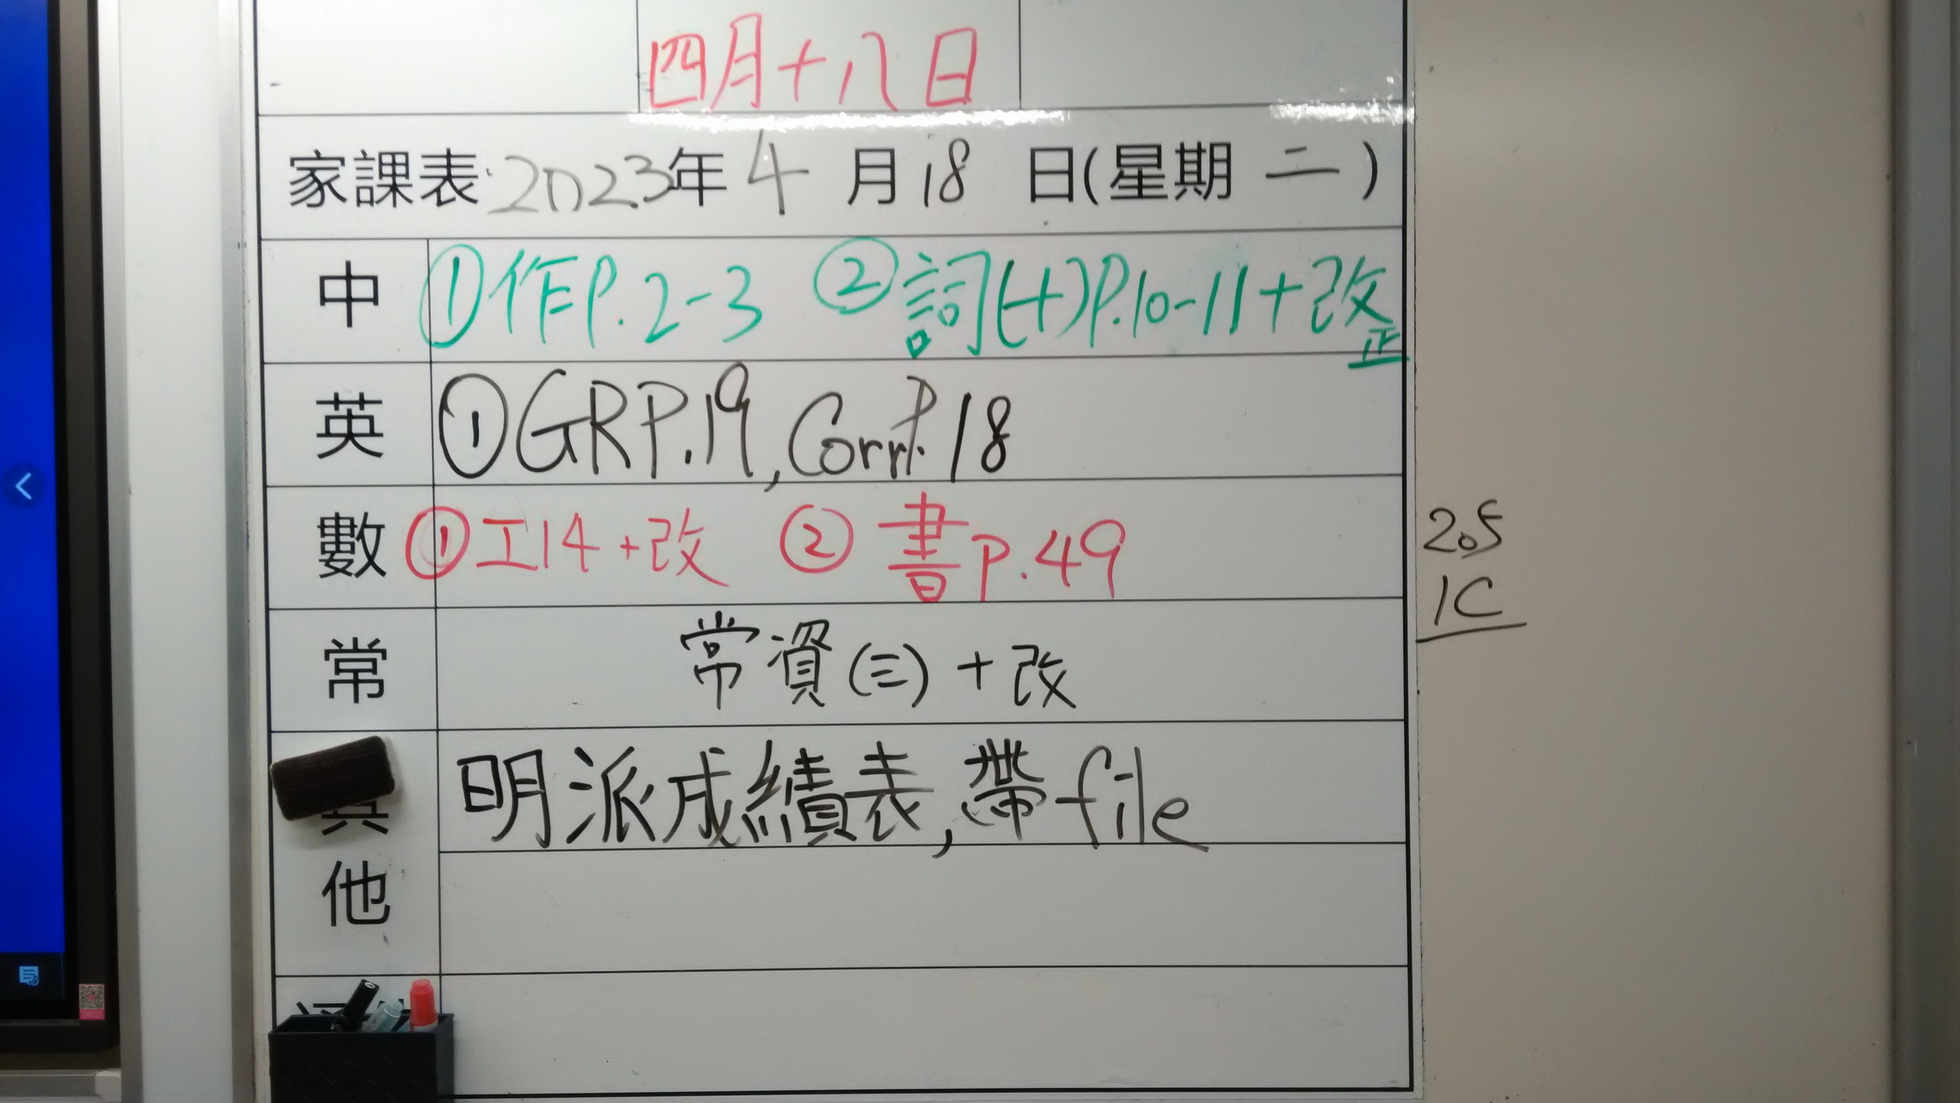 四月十八日
家課表 2023年 4 月 18 日(星期 二 )
中 ①作P.2-3 ②詞(十)P.10-11+改正
英 ①GRP.19, Corr.P.18
數 ①工14+改 ②書P.49
常 常資(三)+改
其他 明派成績表,帶file
205
1C